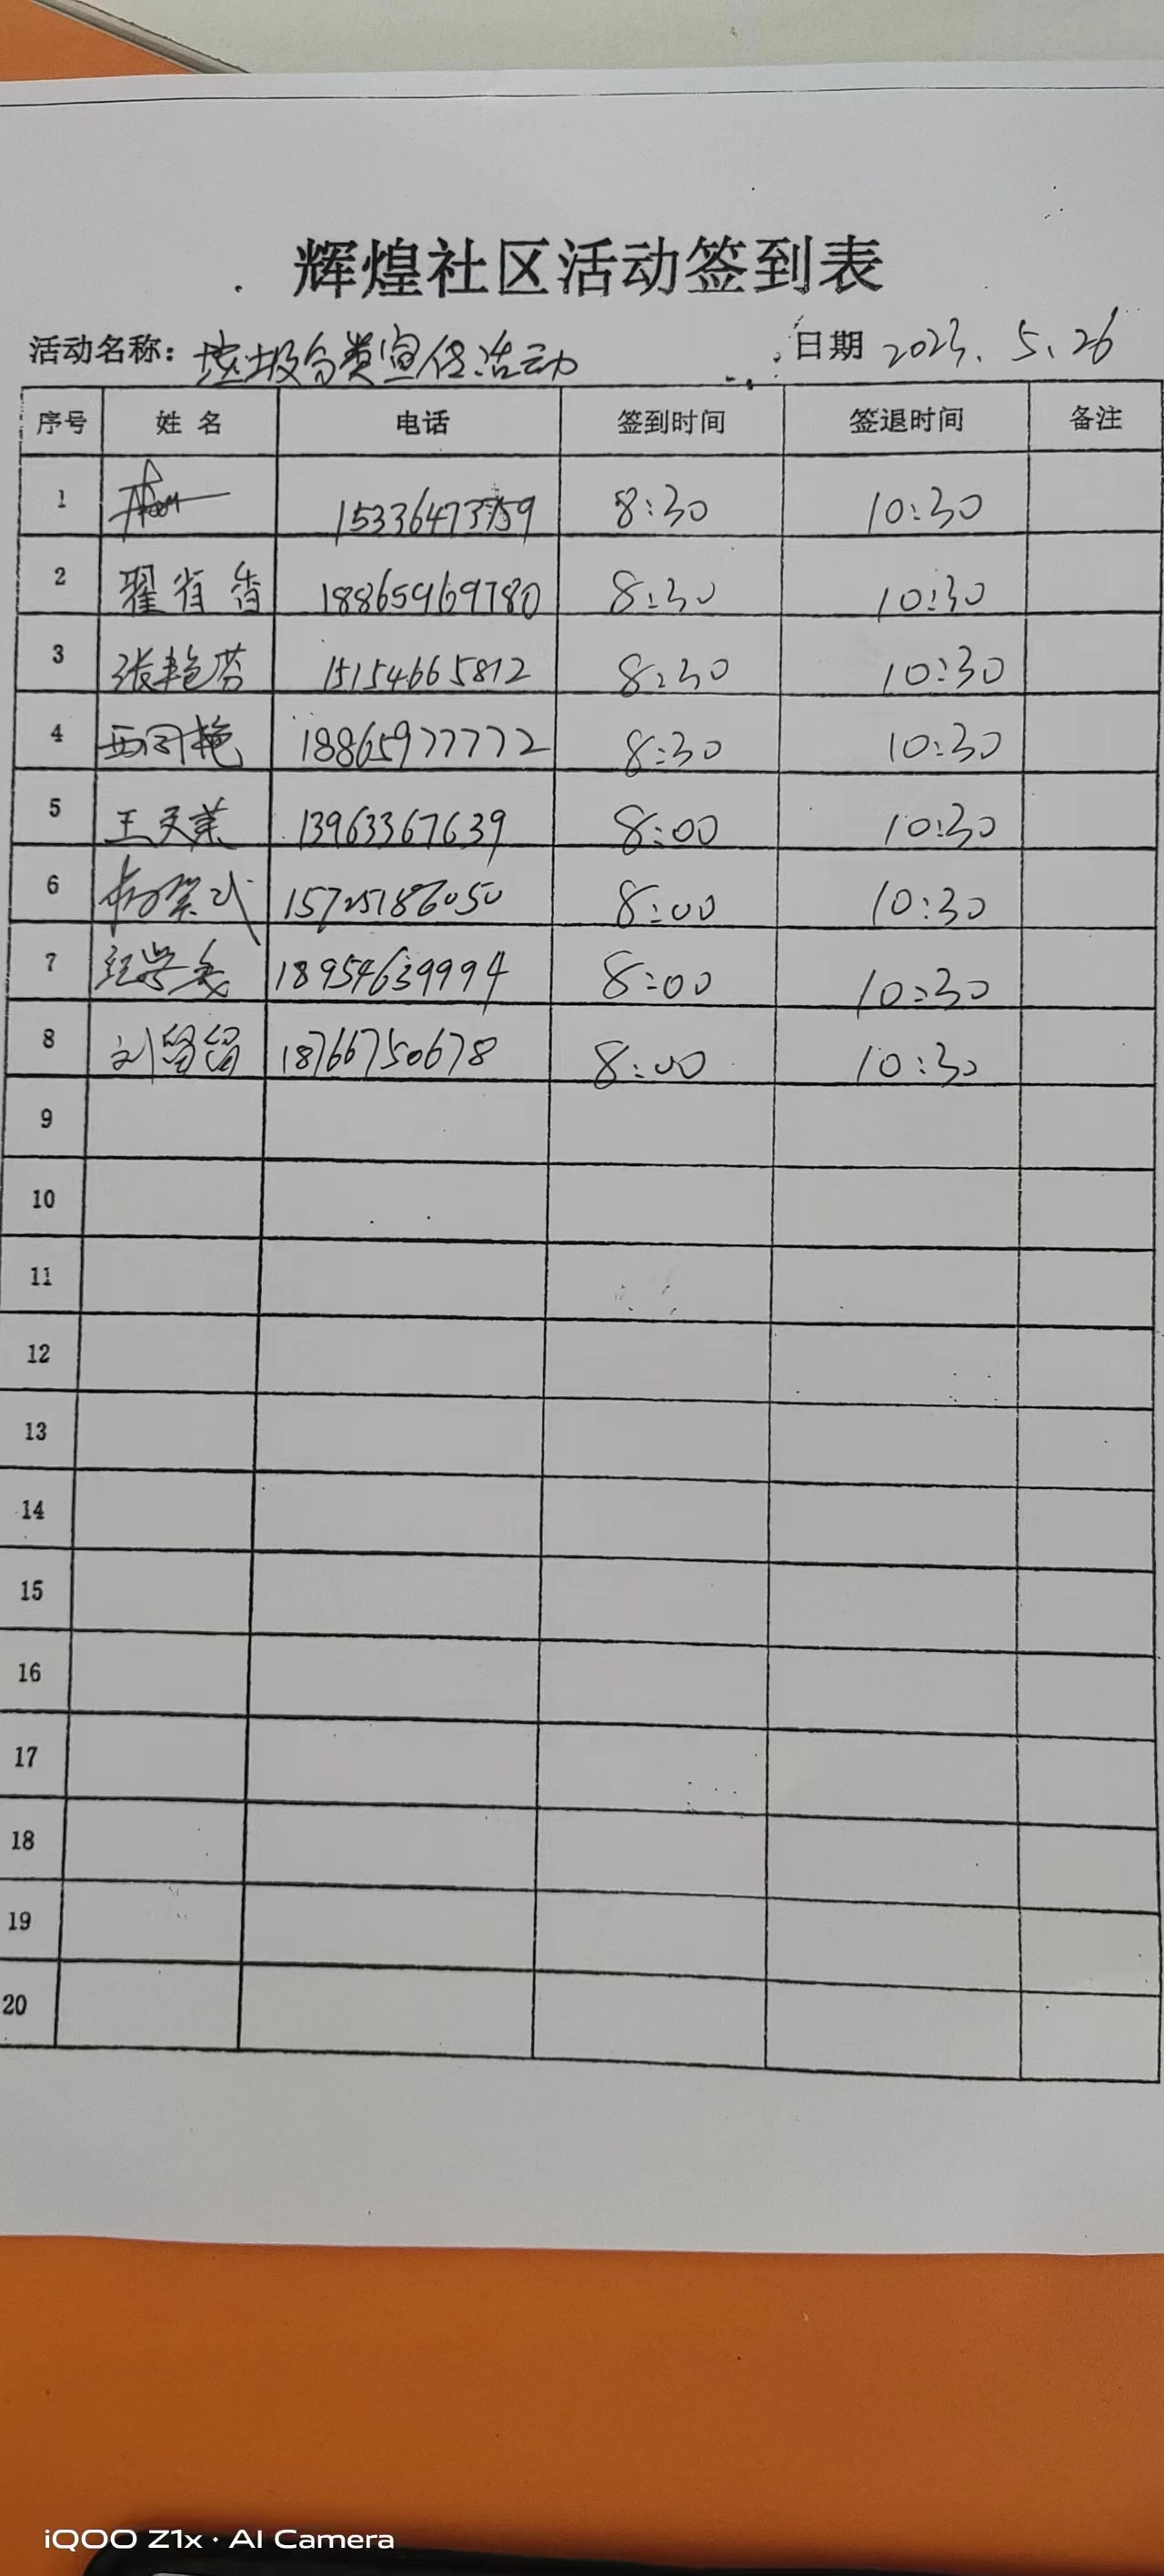 辉煌社区活动签到表
活动名称: 垃圾分类宣传活动 日期 2023.5.26
序号 姓名 电话 签到时间 签退时间 备注
1 15336473759 8:30 10:30
2 翟省香 18865969780 8:30 10:30
3 张艳芬 15154665812 8:30 10:30
4 18865977772 8:30 10:30
5 王天英 13963367639 8:00 10:30
6 15725186050 8:00 10:30
7 18954639994 8:00 10:30
8 刘留留 18766750678 8:00 10:30
9
10
11
12
13
14
15
16
17
18
19
20
iQOO Z1x · AI Camera